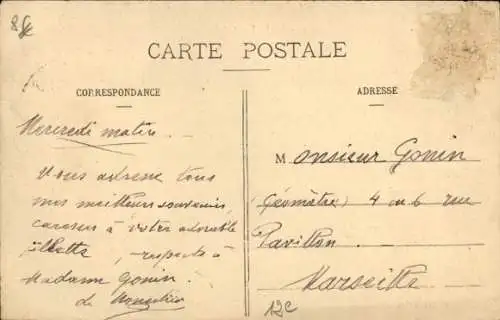 CARTE POSTALE
CORRESPONDANCE
ADRESSE
Mercredi matin
Vous adresse tous
mes meilleurs souvenirs,
caresses à votre adorable
fillette, respects à
Madame Gonin.
de
Monsieur Gonin
(Géomètre) 4 ou 6 rue
Pavillon
Marseille
12€